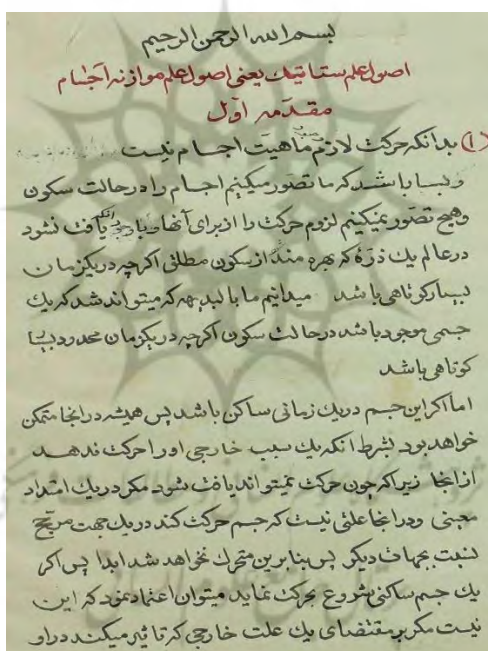 بسم الله الرحمن الرحیم
اصول علم ستاتیك یعنی اصول علم موازنه اجسام
مقدمه اول
(۱) بدانکه حرکت لازم ماهیت اجسام نیست
و بسا باشد که ما تصور میکنیم اجسام را در حالت سکون
و هیچ تصور نمیکنیم لزوم حرکت را از برای آنها و با وجود آنکه یافت نشود
در عالم یك ذرّهٔ که بهره مند از سکون مطلق اکرچه در یکزمان
بسیار کوتاهی باشد میدانیم ما بالبدیهه که میتواند شد که یك
جسمی موجود باشد در حالت سکون اکرچه در یکزمان محدود بسیار
کوتاهی باشد
اما اکر این جسم در یك زمانی ساکن باشد پس همیشه در انجا متمکن
خواهد بود بشرط انکه یك سبب خارجی او را حرکت ندهد
از انجا زیرا که چون حرکت نمیتواند یافت شود مکر در یك امتداد
معینی و در انجا علتی نیست که جسم حرکت کند در یك جهت مرجح
نسبت بجهات دیکر پس بنابرین متحرك نخواهد شد ابدا پس اکر
یك جسم ساکنی شروع بحرکت نماید میتوان اعتماد نمود که این
نیست مکر بر مقتضای یك علت خارجی که تاثیر میکند در او